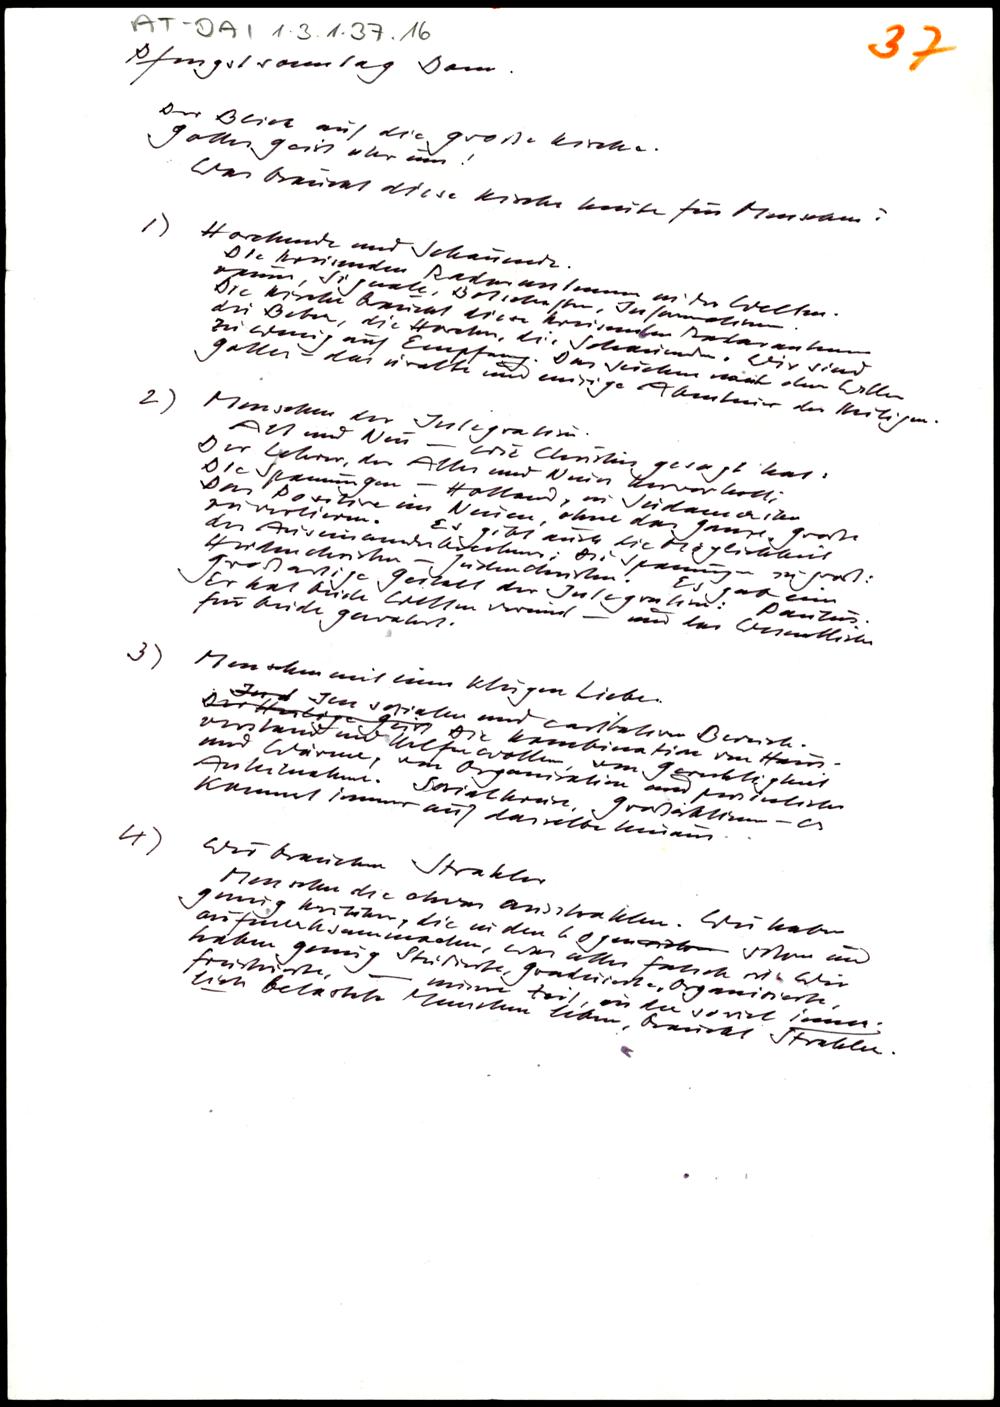 AT-DAI 1.3.1.37.16
37
Pfingstsonntag Dom.
Der Blick auf die große Kirche.
Gottes Geist über uns!
Was braucht diese Kirche heute für Menschen?
1) Horchende und Schauende.
Die kreisenden Radarantennen in den Welten-
raum, Signale, Botschaften, Informationen.
Die Kirche braucht diese kreisenden Radarantennen
die Beter, die Horcher, die Schauenden. Wir sind
zu wenig auf Empfang. Das Suchen nach dem Willen
Gottes – das uralte und einzige Abenteuer der Heiligen.
2) Menschen der Integration.
Alt und Neu – wie Christus gesagt hat:
Der Lehrer, der Altes und Neues hervorholt;
Die Spannungen – Holland, in Südamerika
Das Positive im Neuen, ohne das ganze, große
zu verlieren. Es gibt auch die Möglichkeit
des Auseinanderbrechens: Die Spannungen zu groß:
Heidenchristen – Judenchristen. Es gab eine
großartige Gestalt der Integration: Paulus.
Er hat beide Welten vereint – und das Wesentliche
für beide gewahrt.
3) Menschen mit einer klugen Liebe.
Im sozialen und caritativen Bereich.
Der Heilige Geist Die Kombination von Haus-
verstand und Helfenwollen, von Gerechtigkeit
und Wärme, von Organisation und persönlicher
Anteilnahme. Sozialkreise, Großaktionen – es
kommt immer auf dasselbe hinaus.
4) Wir brauchen Strahler
Menschen die etwas ausstrahlen. Wir haben
genug Kritiker, die in den sehen und
aufmerksammachen, was alles falsch ist. Wir
haben genug Studierte, Graduierte, Organisierte,
Frustrierte, – unsere Zeit, in der soviel inner-
lich belastete Menschen leben, braucht Strahler.